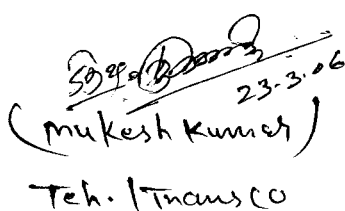 23.3.06
(Mukesh Kumar)
Teh. / Transco